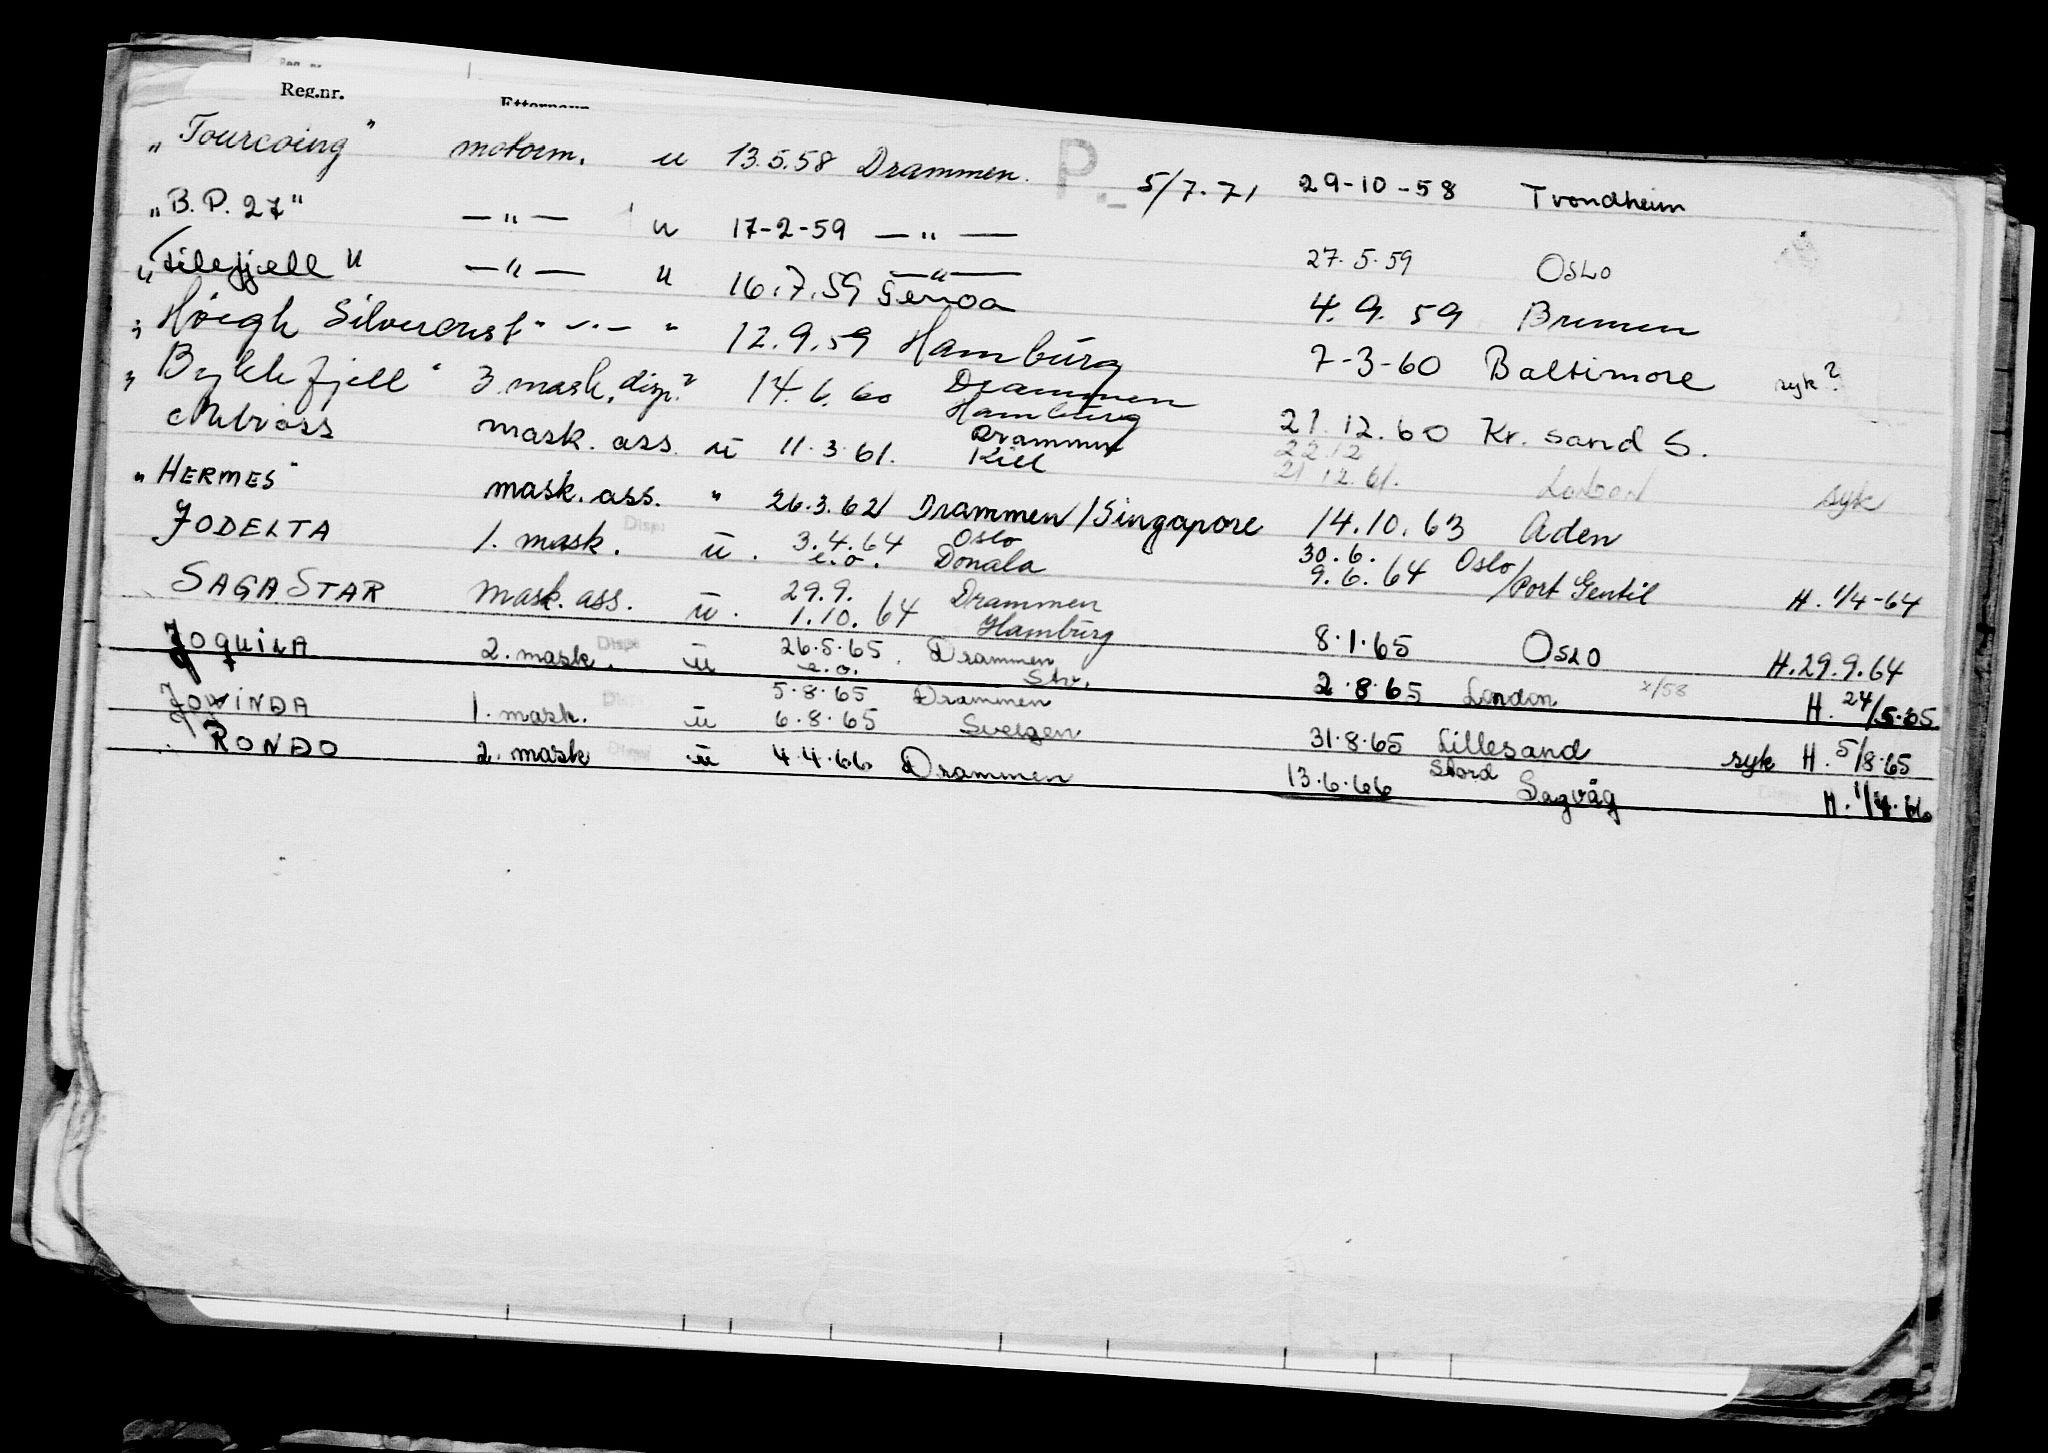 Reg.nr. Etternavn
„Tourcoing" motorm. u 13.5.58 Drammen. P. 5/7.71 29-10-58 Trondheim
„B.P. 27" —„— u 17-2-59 —„— 27.5.59 Oslo
„Filefjell" —"— u 16.7.59 —"— Genoa 4.9.59 Bremen
„Høegh Silvercrest" —"— " 12.9.59 Hamburg 7-3-60 Baltimore syk?
„Byklefjell" 3 mask. disp.? 14.6.60 Drammen Hamburg 21.12.60 Kr. sand S.
22.12
mask. ass. u 11.3.61. Drammen Kiel 21 12.61. London syk
"HERMES" mask. ass. " 26.3.62 Drammen/Singapore 14.10.63 Aden
JODELTA 1. mask. Disp u. 3.4.64 Oslo 30.6. Oslo
e.o. Donala 9.6.64 /Port Gentil H. 1/4-64
SAGA STAR Mask. ass. u. 29.9. Drammen
1.10.64 Hamburg 8.1.65 OSLO H.29.9.64
JOQUILA 2. mask. Disp u 26.5.65. Drammen
e.o. Str. 2.8.65 London x/58 H. 24/5.65
JOWINDA 1. mask. Disp u 5.8.65 Drammen
6.8.65 Svelgen 31.8.65 Lillesand syk H. 5/8.65
RONDO 2. mask Disp u 4.4.66 Drammen 13.6.66 Stord Sagvåg H. 1/4.66